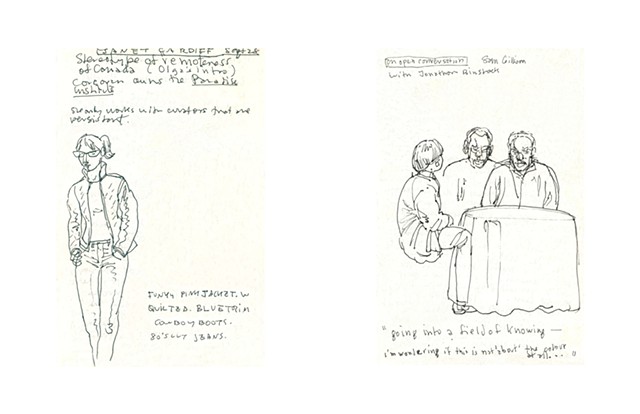 JANET CARDIFF Sept 28
Stereotype of remoteness
of Canada (Olga's Intro)
Corcoran owns the Paradise
Institute
only works with curators that are
persistent.
FUNKY PINK JACKET. W
QUILTED. BLUE TRIM
COWBOY BOOTS.
80'S CUT JEANS.
AN OPEN CONVERSATION Sam Gilliam
with Jonathan Binstock
"going into a field of knowing —
i'm wondering if this is not 'about' the colour
at all...